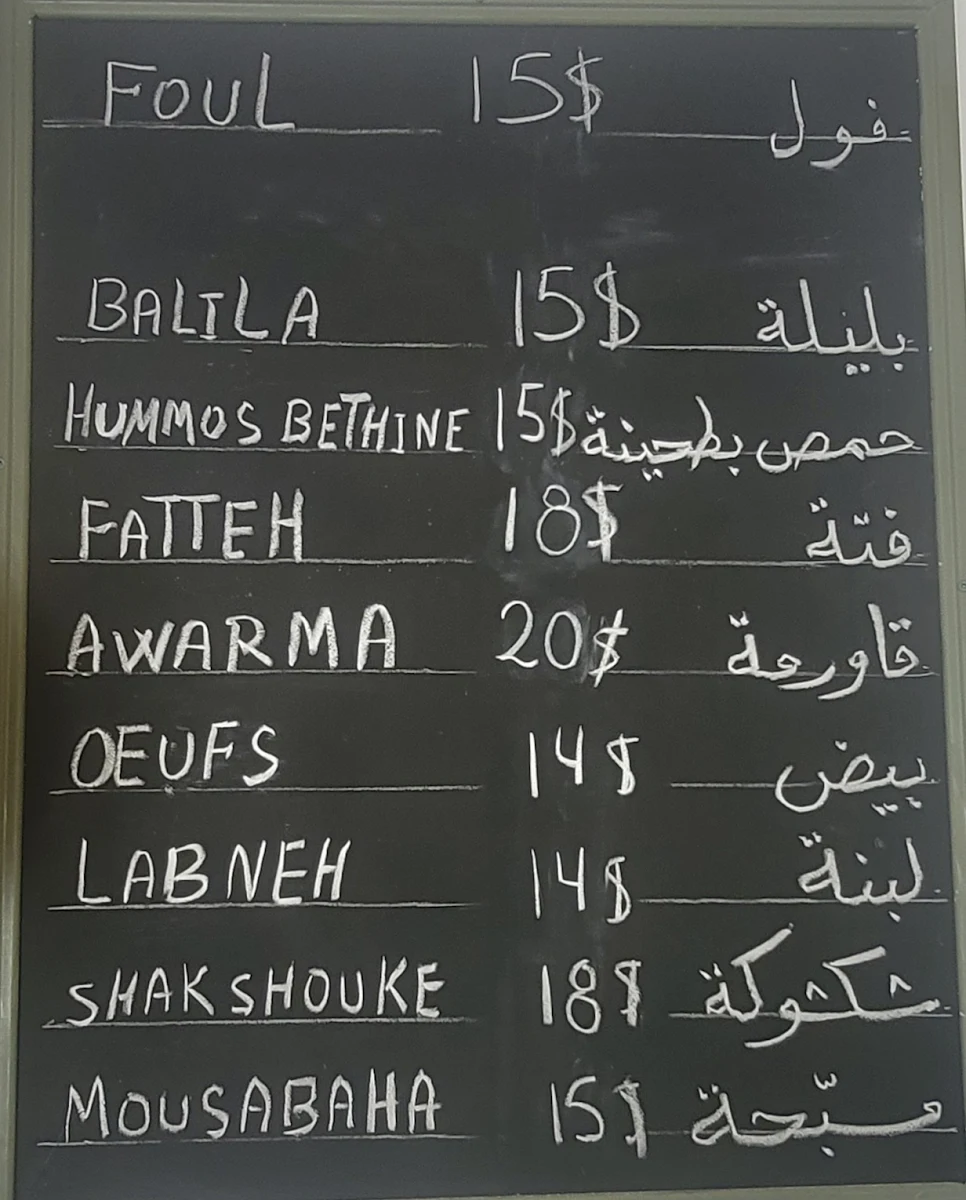 FOUL 15$ فول
BALILA 15$ بليلة
HUMMOS BETHINE 15$ حمص بطحينة
FATTEH 18$ فتة
AWARMA 20$ قاورمة
OEUFS 14$ بيض
LABNEH 14$ لبنة
SHAKSHOUKE 18$ شكشوكة
MOUSABAHA 15$ مسبّحة